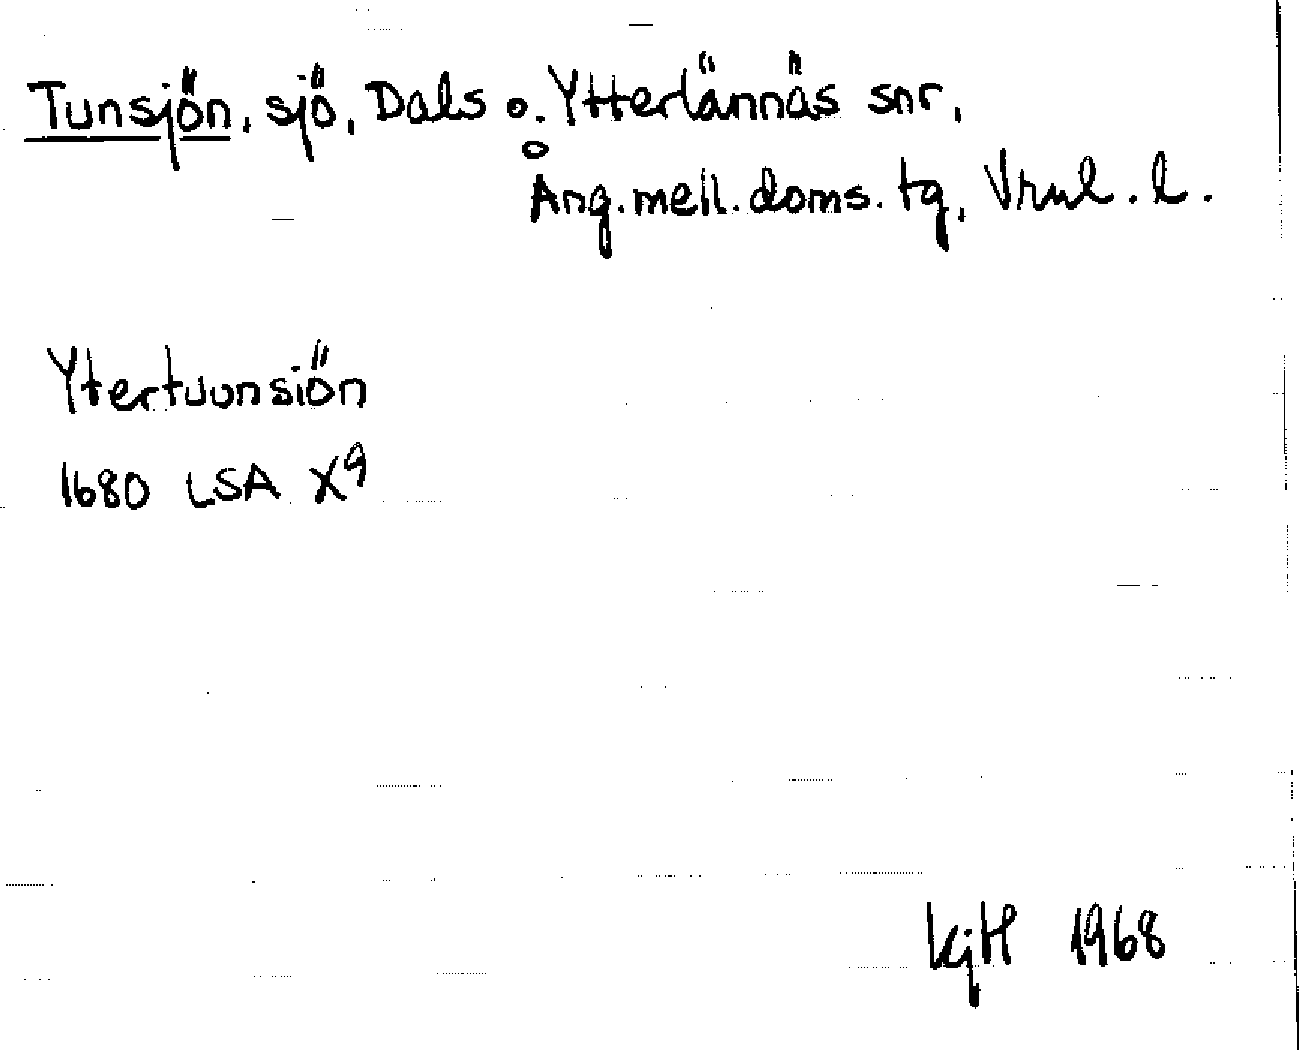 Tunsjön, sjö, Dals o. Ytterlännäs snr,
Ång. mell. doms. tg, Vrnl. l.
Ytertuunsiön
1680 LSA X9
KjH 1968